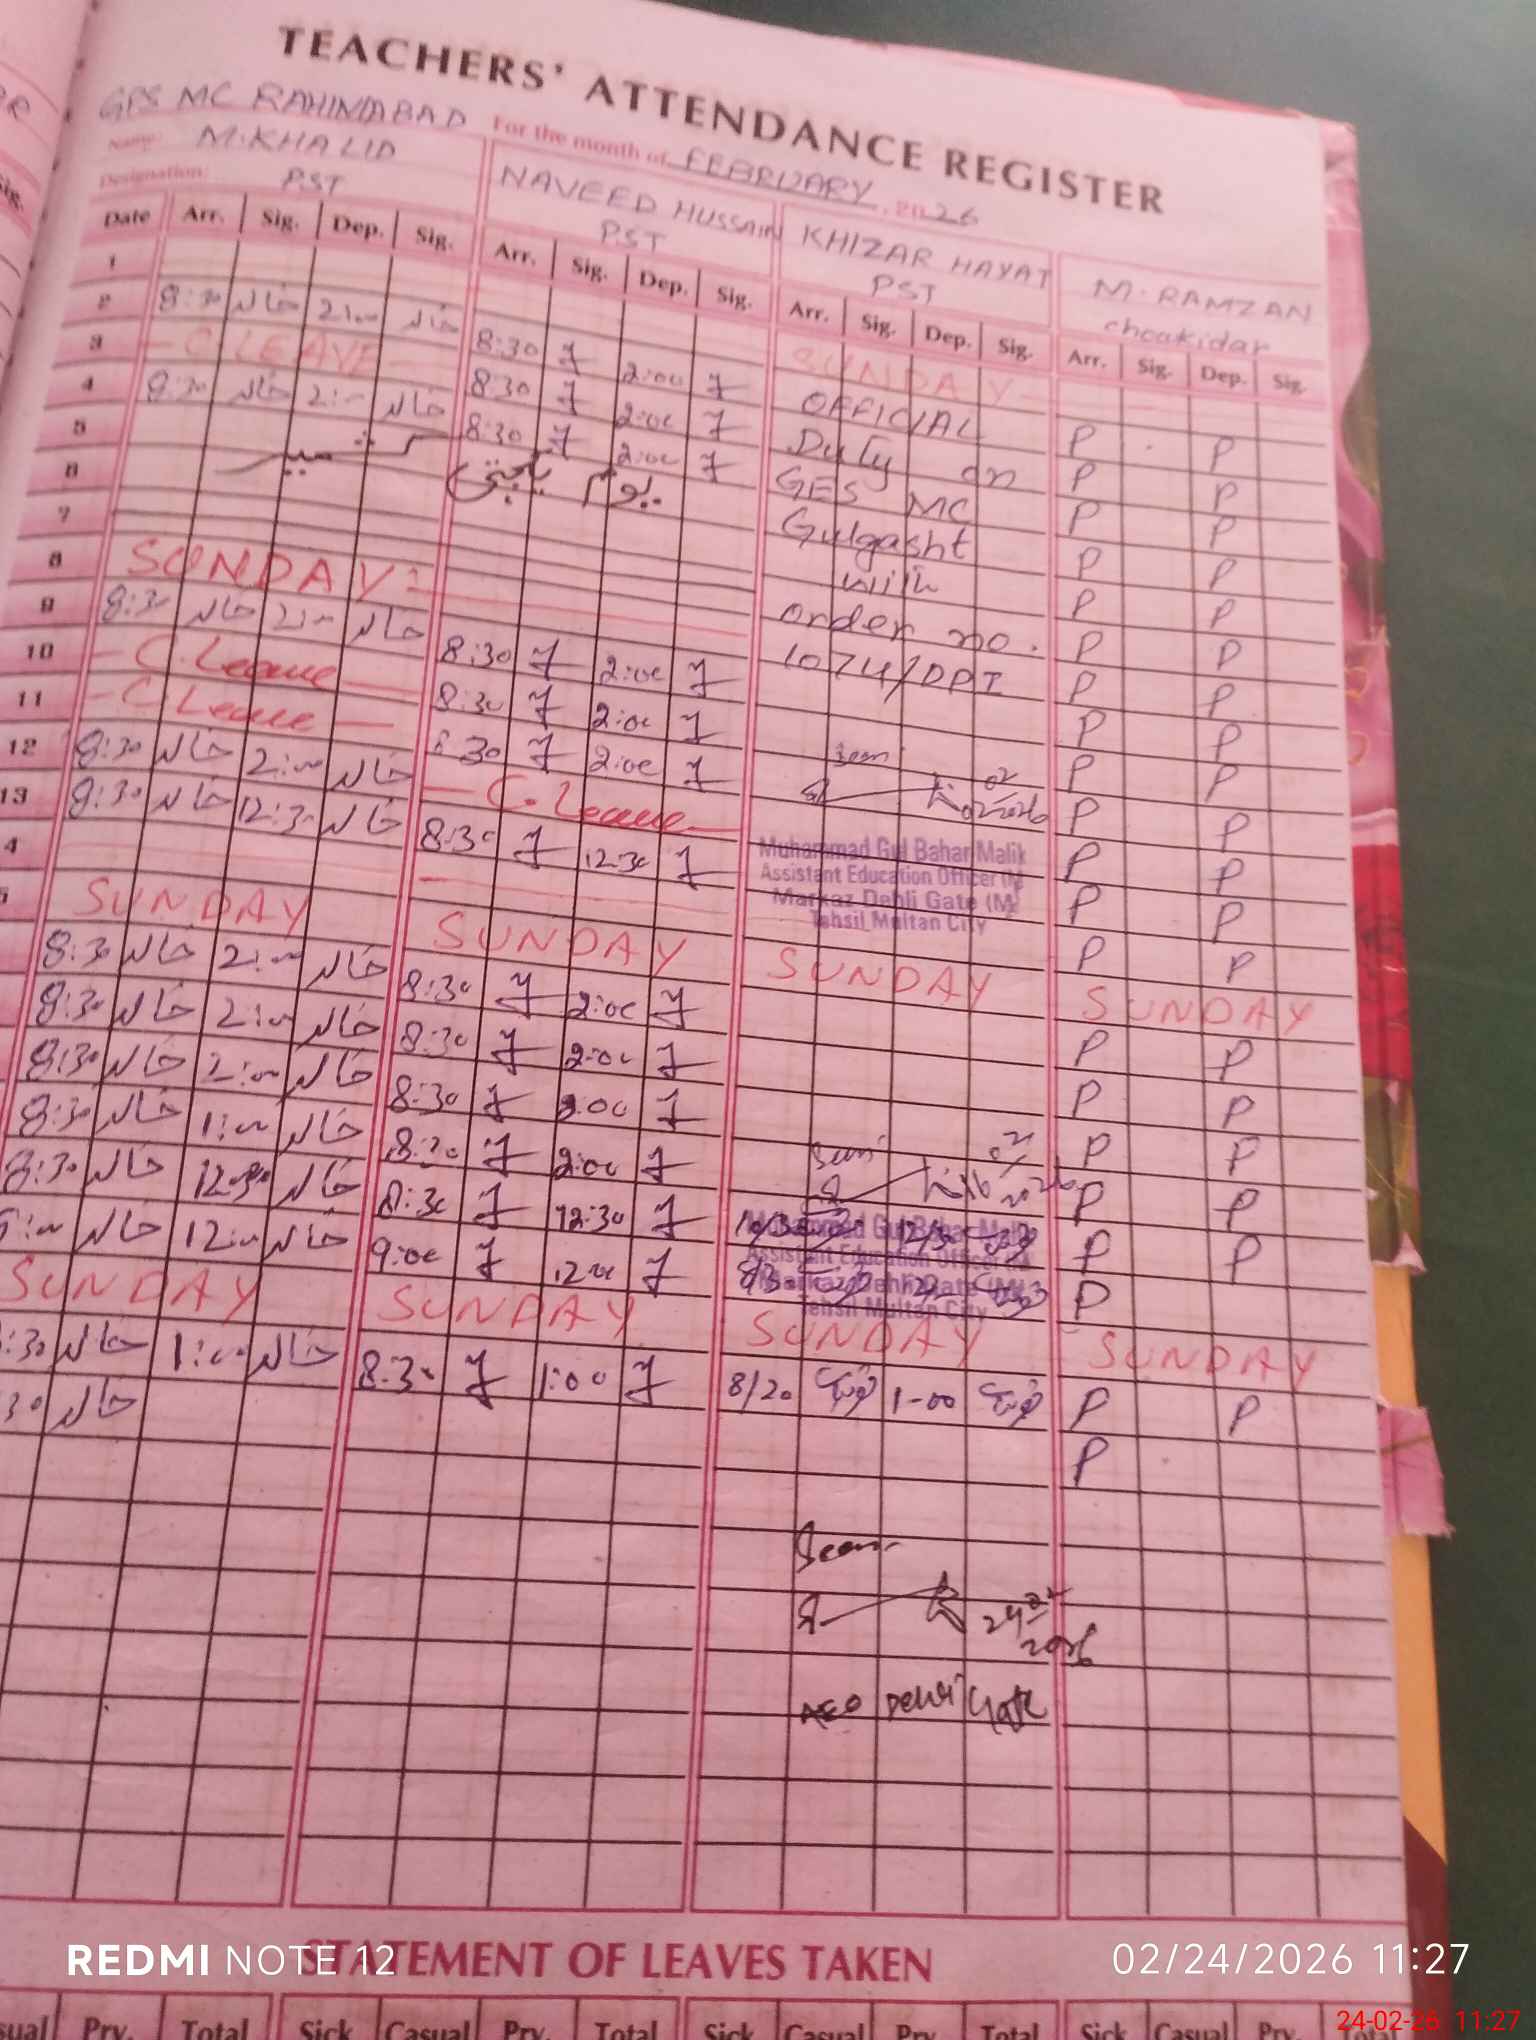 TEACHERS' ATTENDANCE REGISTER
GPS MC RAHIMABAD For the month of FEBRUARY, 2026
Name: M.KHALID NAVEED HUSSAIN KHIZAR HAYAT M. RAMZAN
Designation: PST PST PST choakidar
Date Arr. Sig. Dep. Sig. Arr. Sig. Dep. Sig. Arr. Sig. Dep. Sig. Arr. Sig. Dep. Sig.
1 SUNDAY
2 8:30 خالد 2:00 خالد 8:30 2:00 OFFICIAL P P
3 C.LEAVE 8:30 2:00 Duty on P P
4 8:30 خالد 2:00 خالد 8:30 2:00 GES MC P P
5 یوم یکجہتی کشمیر Gulgasht P P
6 with P P
7 order no. P P
8 SUNDAY 1074/DPI P P
9 8:30 خالد 2:00 خالد 8:30 2:00 P P
10 C.Leave 8:30 2:00 Seen P P
11 C.Leave 8:30 2:00 02 P P
12 8:30 خالد 2:00 خالد C.Leave P P
13 8:30 خالد 12:30 خالد 8:30 12:30 P P
Muhammad Gul Bahar Malik
Assistant Education Officer (M)
Markaz Dehli Gate (M)
Tehsil Multan City
4 P P
SUNDAY SUNDAY SUNDAY SUNDAY
8:30 خالد 2:00 خالد 8:30 2:00 P P
8:30 خالد 2:00 خالد 8:30 2:00 P P
8:30 خالد 2:00 خالد 8:30 2:00 P P
8:30 خالد 1:00 خالد 8:30 2:00 Seen P P
8:30 خالد 12:30 خالد 8:30 12:30 12/30 P P
9:00 خالد 12:00 خالد 9:00 12:00 P
Muhammad Gul Bahar Malik
Assistant Education Officer (M)
Markaz Dehli Gate (M)
Tehsil Multan City
SUNDAY SUNDAY SUNDAY SUNDAY
:30 خالد 1:00 خالد 8:30 1:00 8/20 1-00 P P
30 خالد P
Seen
24 02
2026
AEO Dehli Gate
STATEMENT OF LEAVES TAKEN
sual Prv. Total Sick Casual Prv. Total Sick Casual Prv. Total Sick Casual Prv. Tot
REDMI NOTE 12
02/24/2026 11:27
24-02-26 11:27